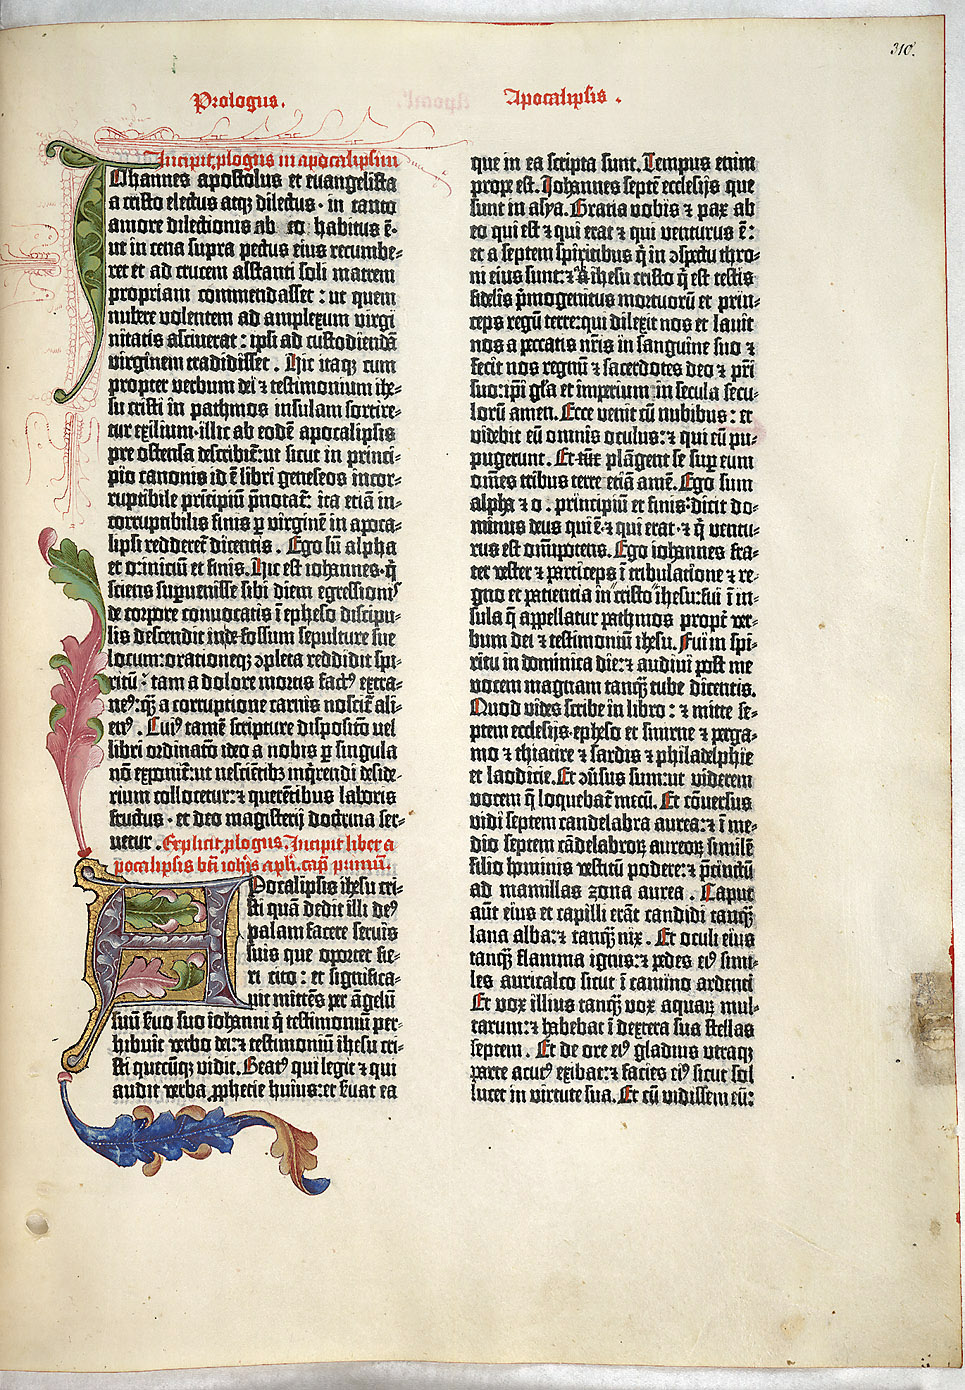 310.
Prologus.
Apocalipsis.
Incipit ꝓlogus in apocalipsim
Iohannes apostolus et euangelista
a cristo electus atqꝫ dilectus · in tanto
amore dilectionis ab eo habitus ē·
ut in cena supra pectus eius recumbe-
ret et ad crucem astanti soli matrem
propriam commendasset : ut quem
nubere volentem ad amplexum virgi
nitatis asciuerat : ipsi ad custodiendā
virginem tradidisset . Hic itaqꝫ cum
propter verbum dei ⁊ testimonium ihe-
su cristi in pathmos insulam sortire-
tur exilium·illic ab eodē apocalipsis
pre ostensa describit̄:ut sicut in princi-
pio canonis id ē libri geneseos incor-
ruptibile prīcipiū p̄notat̄: ita etiā in-
corruptibilis finis ꝑ virginē in apoca-
lipsi redderet̄ dicentis . Ego sū alpha
et o:iniciū et finis.Hic est iohannes·q̄
sciens suꝑuenisse sibi diem egressionis
de corpore conuocatis ī epheso discipu-
lis descendit inde·fossum sepulture sue
locum:orationeqꝫ ꝯpleta reddidit spi-
ritū : tam a dolore mortis factꝰ extra-
neꝰ:qꝫ̄ a corruptione carnis noscit̄ ali-
enꝰ . Cuiꝰ tamē scripture dispositō uel
libri ordinatō ideo a nobis ꝑ singula
nō exponit̄:ut nesciētibꝫ inq̄rendi deside-
rium collocetur:⁊ querētibus laboris
fructus · et deo magisterij doctrina ser-
uetur . Explicit ꝓlogus. Incipit liber a
pocalipsis bt̄i ioh̄is apl̄i. cap̄ primū.
Apocalipsis ihesu cri-
sti quā dedit illi deꝰ
palam facere seruis
suis que oportet fie-
ri cito : et significa-
uit mittēs per āgelū
suū seruo suo iohanni q̄ testimoniū per-
hibuit verbo dei:⁊ testimoniū ihesu cri-
sti quecūqꝫ vidit. Beatꝰ qui legit ⁊ qui
audit verba ꝓphecie huius:et seruat ea
que in ea scripta sunt. Tempus enim
prope est. Iohannes septē ecclesijs que
sunt in asya. Gratia vobis ⁊ pax ab
eo qui est ⁊ qui erat ⁊ qui venturus ē:
et a septem spiritibus q̄ in ꝯspectu thro-
ni eius sunt:⁊ a ihesu cristo q̄ est testis
fidelis p̄mogenitus mortuorū et prin-
ceps regū terre:qui dilexit nos et lauit
nos a peccatis nr̄is in sanguine suo ⁊
fecit nos regnū ⁊ sacerdotes deo ⁊ pr̄i
suo:ip̄i gl̄a et imperium in secula secu-
lorū amen. Ecce venit cū nubibus : et
videbit eū omnis oculus:⁊ qui eū pu-
pugerunt. Et tūc plāgent se suꝑ eum
om̄es tribus terre etiā amē. Ego sum
alpha ⁊ o : principiū et finis:dicit do-
minus deus qui ē·⁊ qui erat·⁊ q̄ ventu-
rus est om̄ipotens. Ego iohannes fra-
ter vester ⁊ particeps ī tribulatione ⁊ re-
gno et patientia in cristo ihesu:fui ī in-
sula q̄ appellatur pathmos propt̄ ver-
bum dei ⁊ testimoniū ihesu. Fui in spi-
ritu in dominica die:⁊ audiui post me
vocem magnam tanqꝫ̄ tube dicentis.
Quod vides scribe in libro : ⁊ mitte se-
ptem ecclesijs·epheso et smirne ⁊ perga-
mo ⁊ thiatire ⁊ sardis ⁊ philadelphie
et laodicie. Et ꝯuersus sum:ut viderem
vocem q̄ loquebat̄ mecū. Et cōuersus
vidi septem candelabra aurea:⁊ ī me-
dio septem cādelabroꝝ aureoꝝ similē
filio hominis vestitū podere:⁊ p̄cinctū
ad mamillas zona aurea . Caput
aūt eius et capilli erāt candidi tanqꝫ̄
lana alba:⁊ tanqꝫ̄ nix . Et oculi eius
tanqꝫ̄ flamma ignis:⁊ pedes eiꝰ simi-
les auricalco sicut ī camino ardenti
Et vox illius tanqꝫ̄ vox aquaꝝ mul-
tarum:⁊ habebat ī dextera sua stellas
septem . Et de ore eiꝰ gladius utraqꝫ
parte acutꝰ exibat:⁊ facies eiꝰ sicut sol
lucet in virtute sua. Et cū vidissem eū: